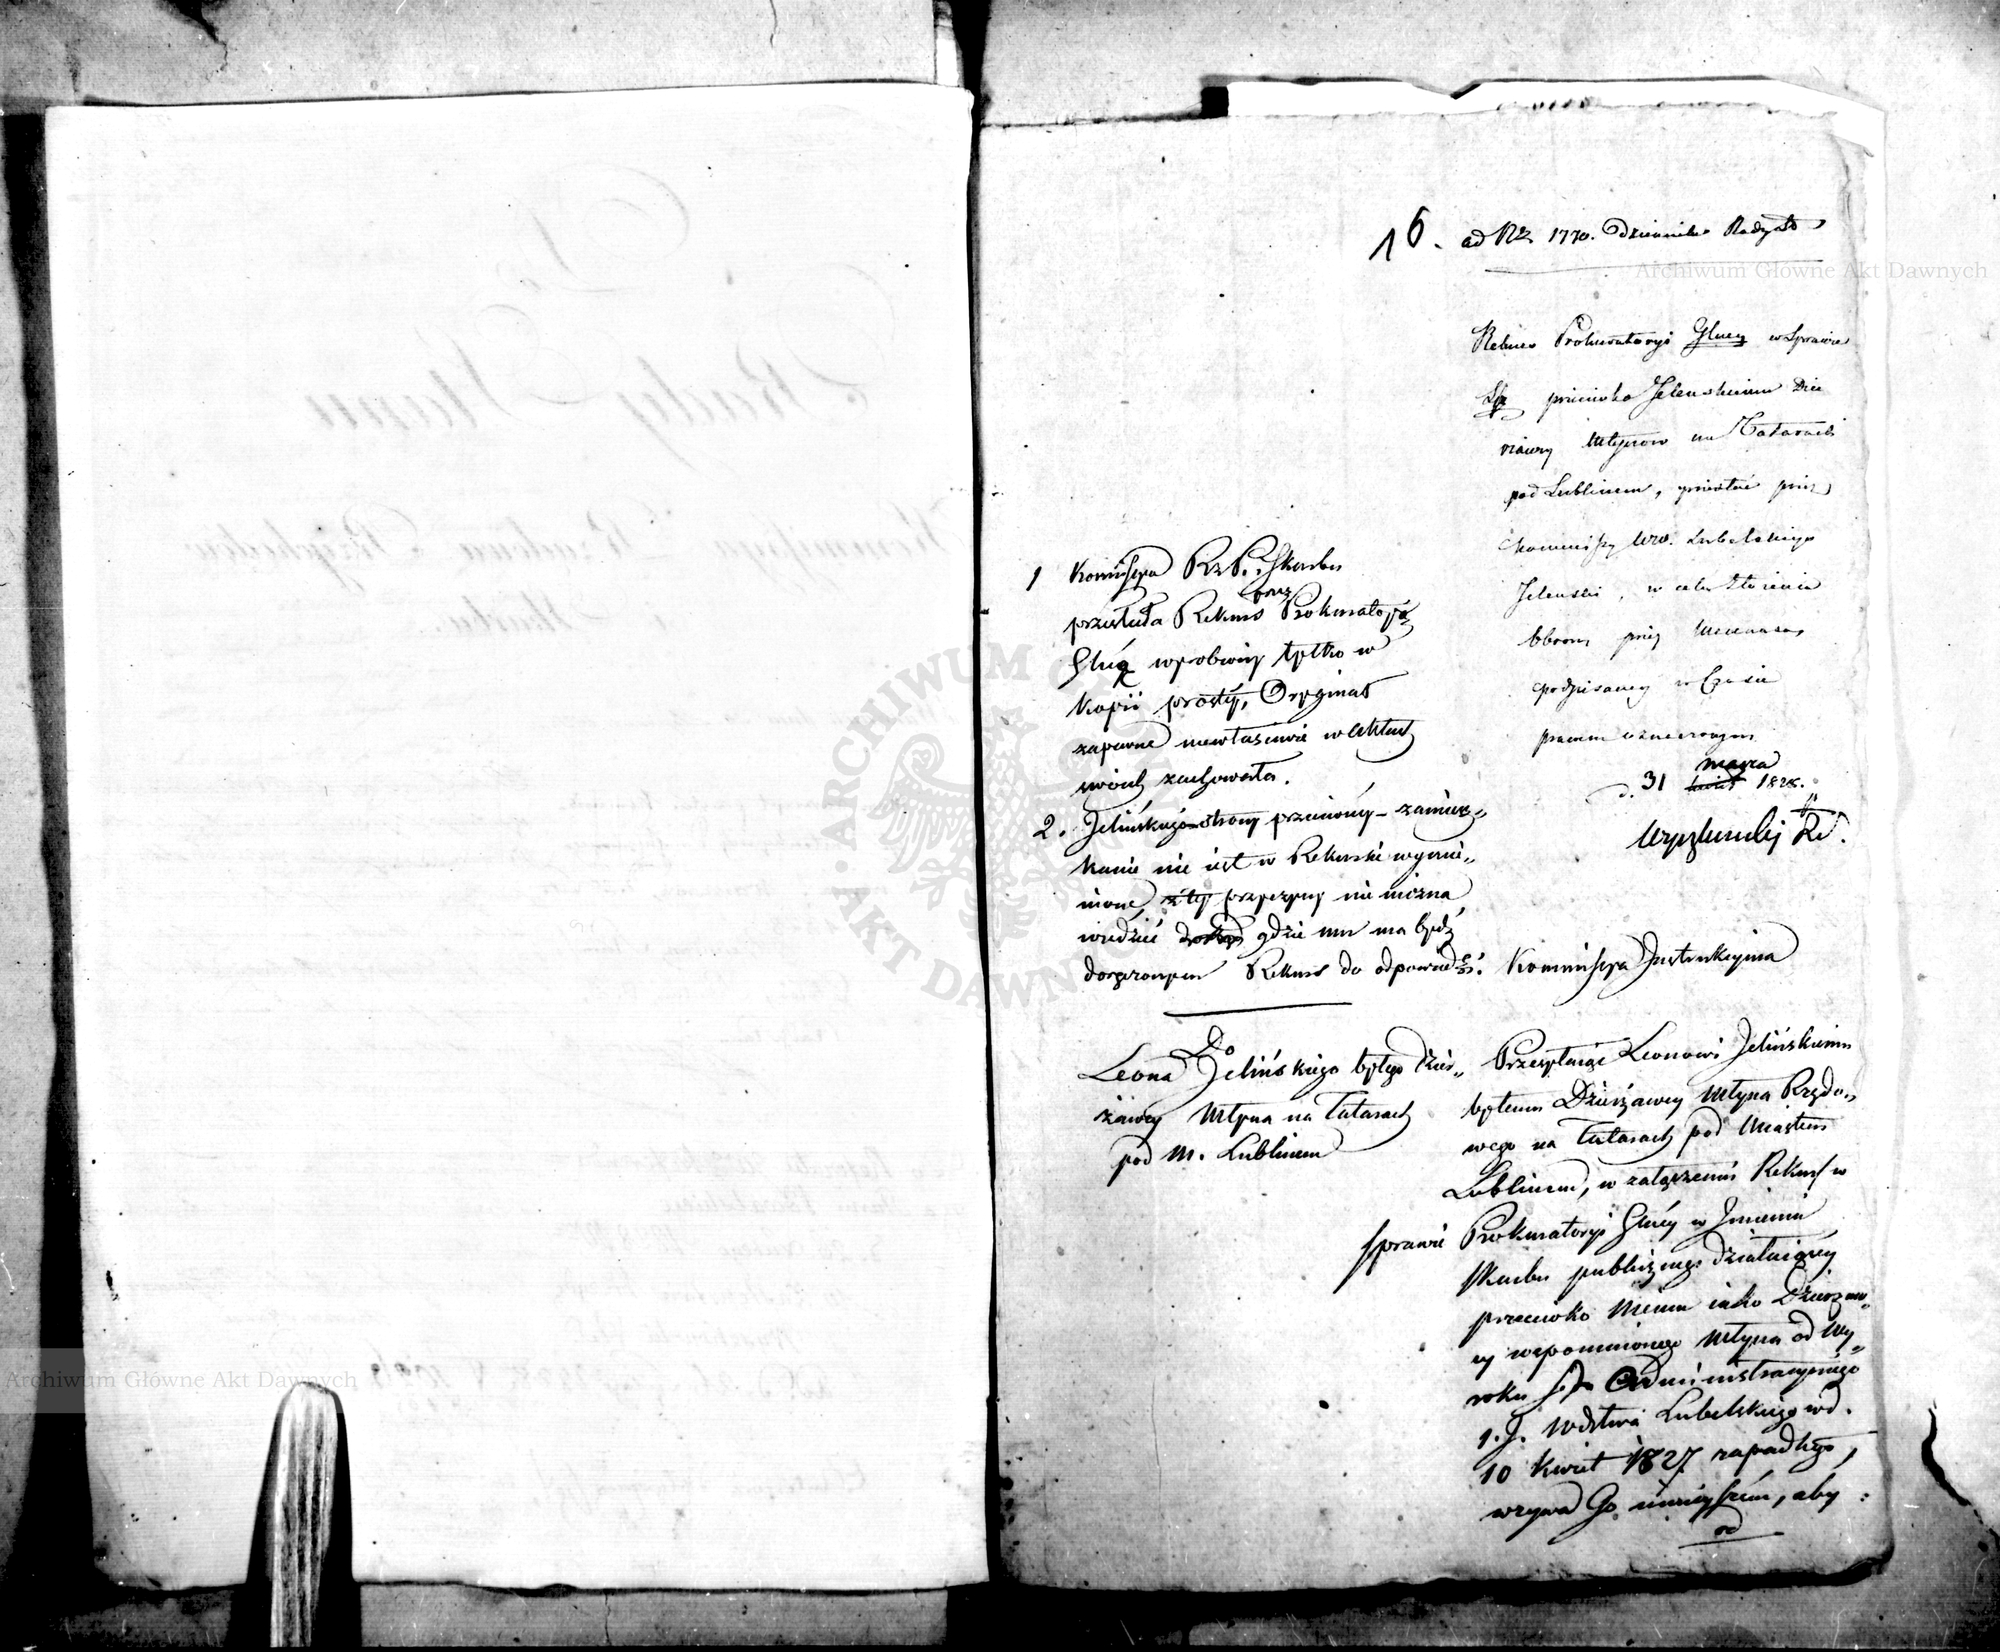 16. ad Nr 1770. Dziennika
Rekurs Prokuratoryi Głney w Sprawie
przeciwko Jelenskiemu Dzie
rżawcy Młynów na Tatarach
pod Lublinem, przesłać przez
Kommissyę Wwa. Lubelskiego
Jelenski, w celu złożenia
Obrony przez Mecenasa
podpisaney w Czasie
prawem oznaczonym
d. 31 marca 1828.
1 Kommissya Rz. P. i Skarbu
przesłała Rekurs przez Prokuratoryą
Głną wyrobiony tylko w
kopii prostey, Oryginał
zapewne niewłaściwie w Aktach
swoich zachowała.
2. Jelińskiego strony przeciwney zamiesz„
kanie nie iest w Rekursie wymie„
nione, z tey przyczyny nie można
wiedzieć gdzie mu ma bydź
doręczonym Rekurs do odpowiedzi.
Kommissya Instrukcyina
Do
Leona Jelińskiego byłego Dzier„
żawcy Młyna na Tatarach
pod M. Lublinem
Przesyłaiąc Leonowi Jelińskiemu
byłemu Dzierżawcy Młyna Rządo„
wego na Tatarach pod Miastem
Lublinem, w załączeniu Rekurs w
sprawie Prokuratoryi Głney w Imieniu
Skarbu publicznego działaiącey
przeciwko Niemu iako Dzierżaw„
cy wspomnionego Młyna od Wy„
roku Sądu Administracyinego
1. J. Wdztwa Lubelskiego w d.
10 Kwiet 1827 zapadłego,
wzywa Go ninieyszem, aby
od
Archiwum Główne Akt Dawnych
Archiwum Główne Akt Dawnych
ARCHIWUM GŁÓWNE AKT DAWNYCH